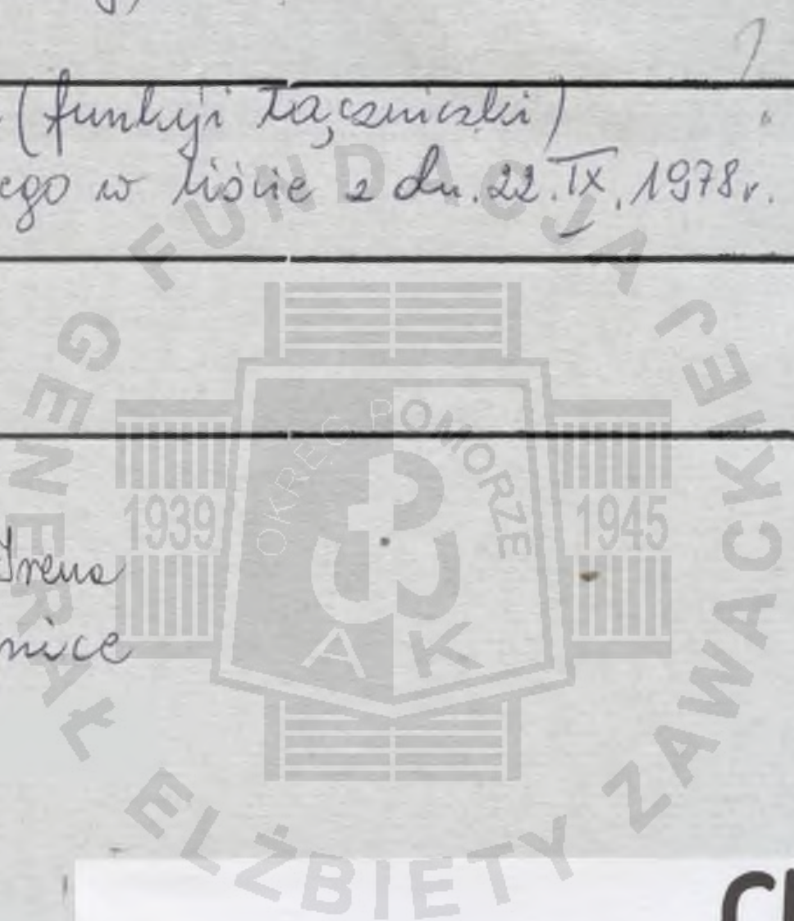 (funkcji łączniczki)
ego w liście z dn. 22.IX.1978r.
Irena
nice
FUNDACJA GENERAŁ ELŻBIETY ZAWACKIEJ
OKRĘG POMORZE
1939
1945
A K